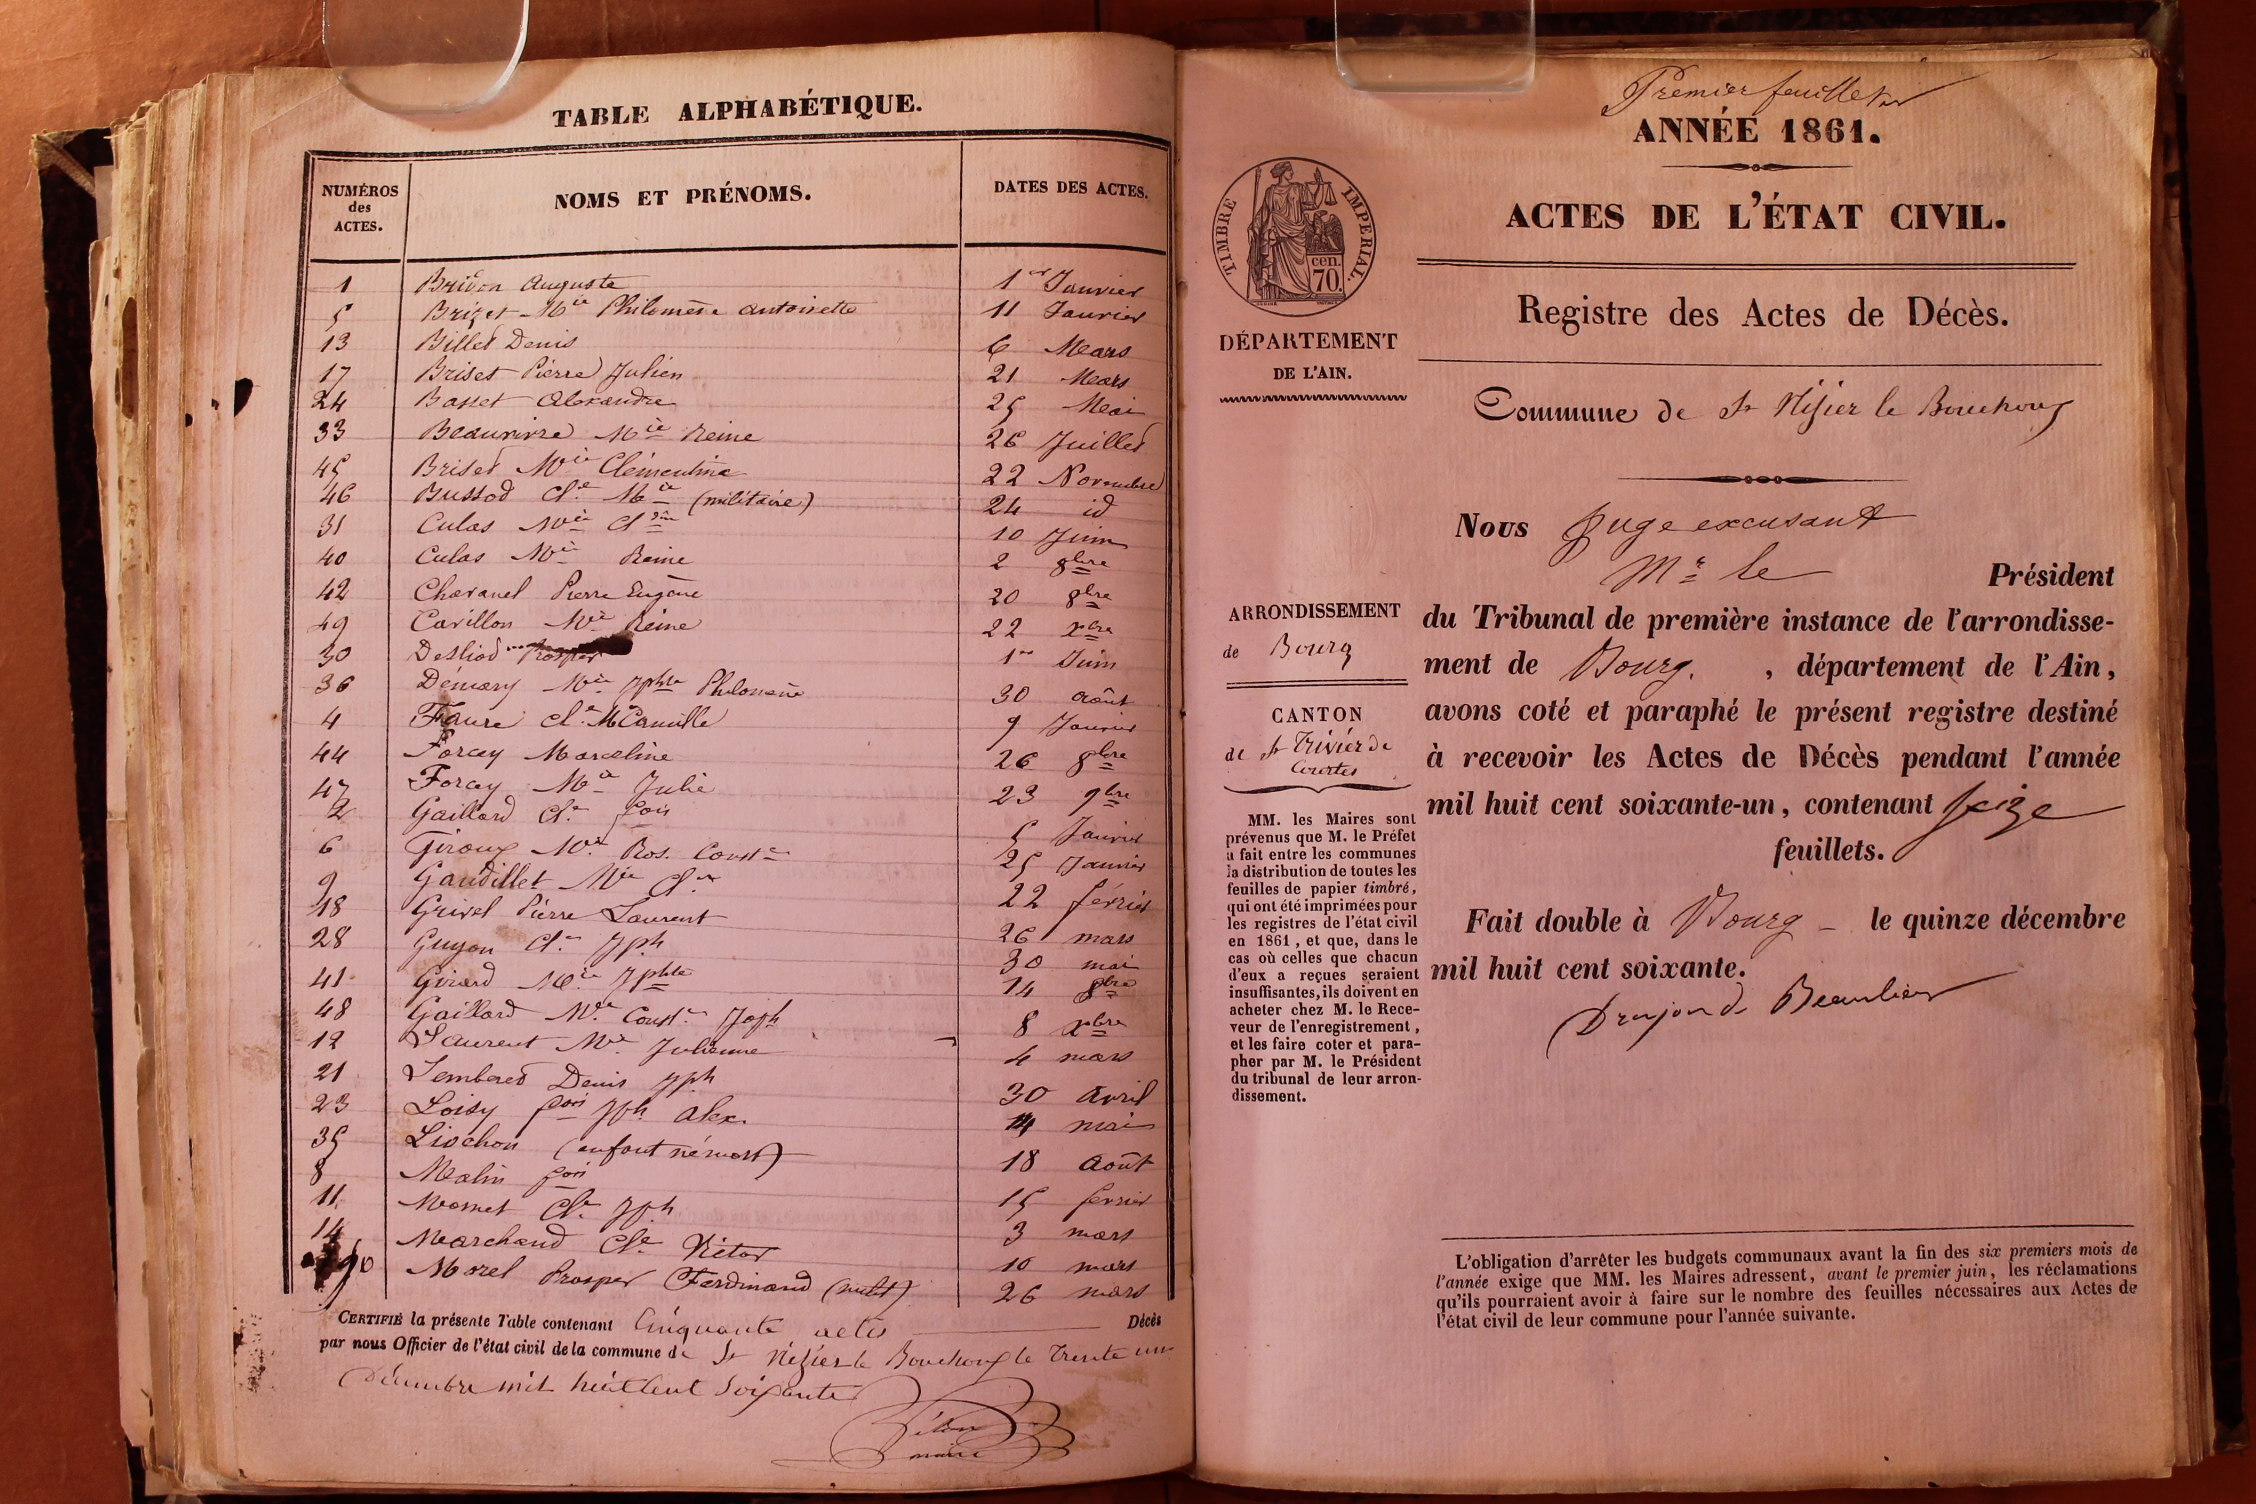 TABLE ALPHABÉTIQUE.
NUMÉROS des ACTES. NOMS ET PRÉNOMS. DATES DES ACTES.
1 Bridon Auguste 1er Janvier
5 Brizet Mie Philomène Antoinette 11 Janvier
13 Billet Denis 6 Mars
17 Briset Pierre Julien 21 Mars
24 Basset Alexandre 25 Mai
33 Beauvivre Mie Reine 26 Juillet
45 Briset Mie Clémentine 22 Novembre
46 Bussod Cl.e Mie (militaire) 24 id
31 Culas Mie Cl.dine 10 Juin
40 Culas Mie Reine 2 8bre
42 Chavanel Pierre Eugène 20 8bre
49 Cavillon Mie Reine 22 xbre
30 Desliod Prosper 1er Juin
36 Démary Mie Jphte Philomène 30 août
4 Faure Cl.e M Camille 9 Janvier
44 Forcey Marceline 26 8bre
47 Forcey Mie Julie 23 9bre
2 Gaillard Cl.e fçois 5 Janvier
6 Giroux Mie Ros. Const.ce 25 Janvier
9 Gaudillet Mie Cl.ne 22 février
18 Grivel Pierre Laurent 26 mars
28 Guyon Cl.e Jph 30 mai
41 Girard Mie Jphte 14 8bre
48 Gaillard Mie Const.ce Joph 8 xbre
12 Laurent Mie Julienne 4 mars
21 Lemberet Denis Jph 30 avril
23 Loisy fçois Jph alex. 14 mai
35 Liochon (enfant né mort) 18 août
8 Malin fçois 15 fevrier
11 Mornet Cl.e Jph 3 mars
14 Marchand Cl.e Victor 10 mars
Morel Prosper Ferdinand (milit) 26 mars
CERTIFIÉ la présente Table contenant Cinquante actes Décès
par nous Officier de l'état civil de la commune de St Nizier le Bouchoux le Trente un
Décembre mil huit cent Soixante
maire
Premier feuillet
ANNÉE 1861.
ACTES DE L'ÉTAT CIVIL.
TIMBRE IMPÉRIAL.
cen.
70.
Registre des Actes de Décès.
DÉPARTEMENT
DE L'AIN.
Commune de St Nizier le Bouchoux
Nous Juge excusant
Mr le Président
ARRONDISSEMENT
de Bourg
CANTON
de St Trivier de
Courtes
du Tribunal de première instance de l'arrondisse-
ment de Bourg. , département de l'Ain,
avons coté et paraphé le présent registre destiné
à recevoir les Actes de Décès pendant l'année
mil huit cent soixante-un, contenant Seize
feuillets.
Fait double à Bourg le quinze décembre
mil huit cent soixante.
MM. les Maires sont
prévenus que M. le Préfet
a fait entre les communes
la distribution de toutes les
feuilles de papier timbré,
qui ont été imprimées pour
les registres de l'état civil
en 1861, et que, dans le
cas où celles que chacun
d'eux a reçues seraient
insuffisantes, ils doivent en
acheter chez M. le Rece-
veur de l'enregistrement,
et les faire coter et para-
pher par M. le Président
du tribunal de leur arron-
dissement.
L'obligation d'arrêter les budgets communaux avant la fin des six premiers mois de
l'année exige que MM. les Maires adressent, avant le premier juin, les réclamations
qu'ils pourraient avoir à faire sur le nombre des feuilles nécessaires aux Actes de
l'état civil de leur commune pour l'année suivante.